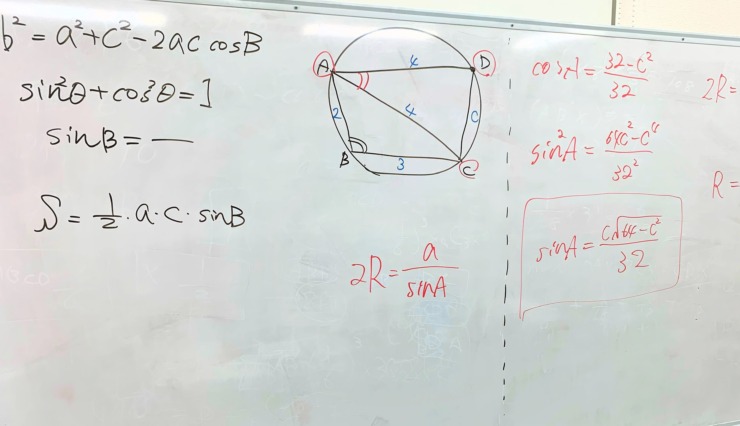 b² = a²+c²-2ac cosB
sin²θ+cos²θ=1
sinB = —
S = 1/2 · a · c · sinB
A
4
D
2
4
c
B
3
C
2R = a/sinA
cosA = 32-c²/32
sin²A = 64c²-c⁴/32²
sinA = c√64-c²/32
2R=
R=